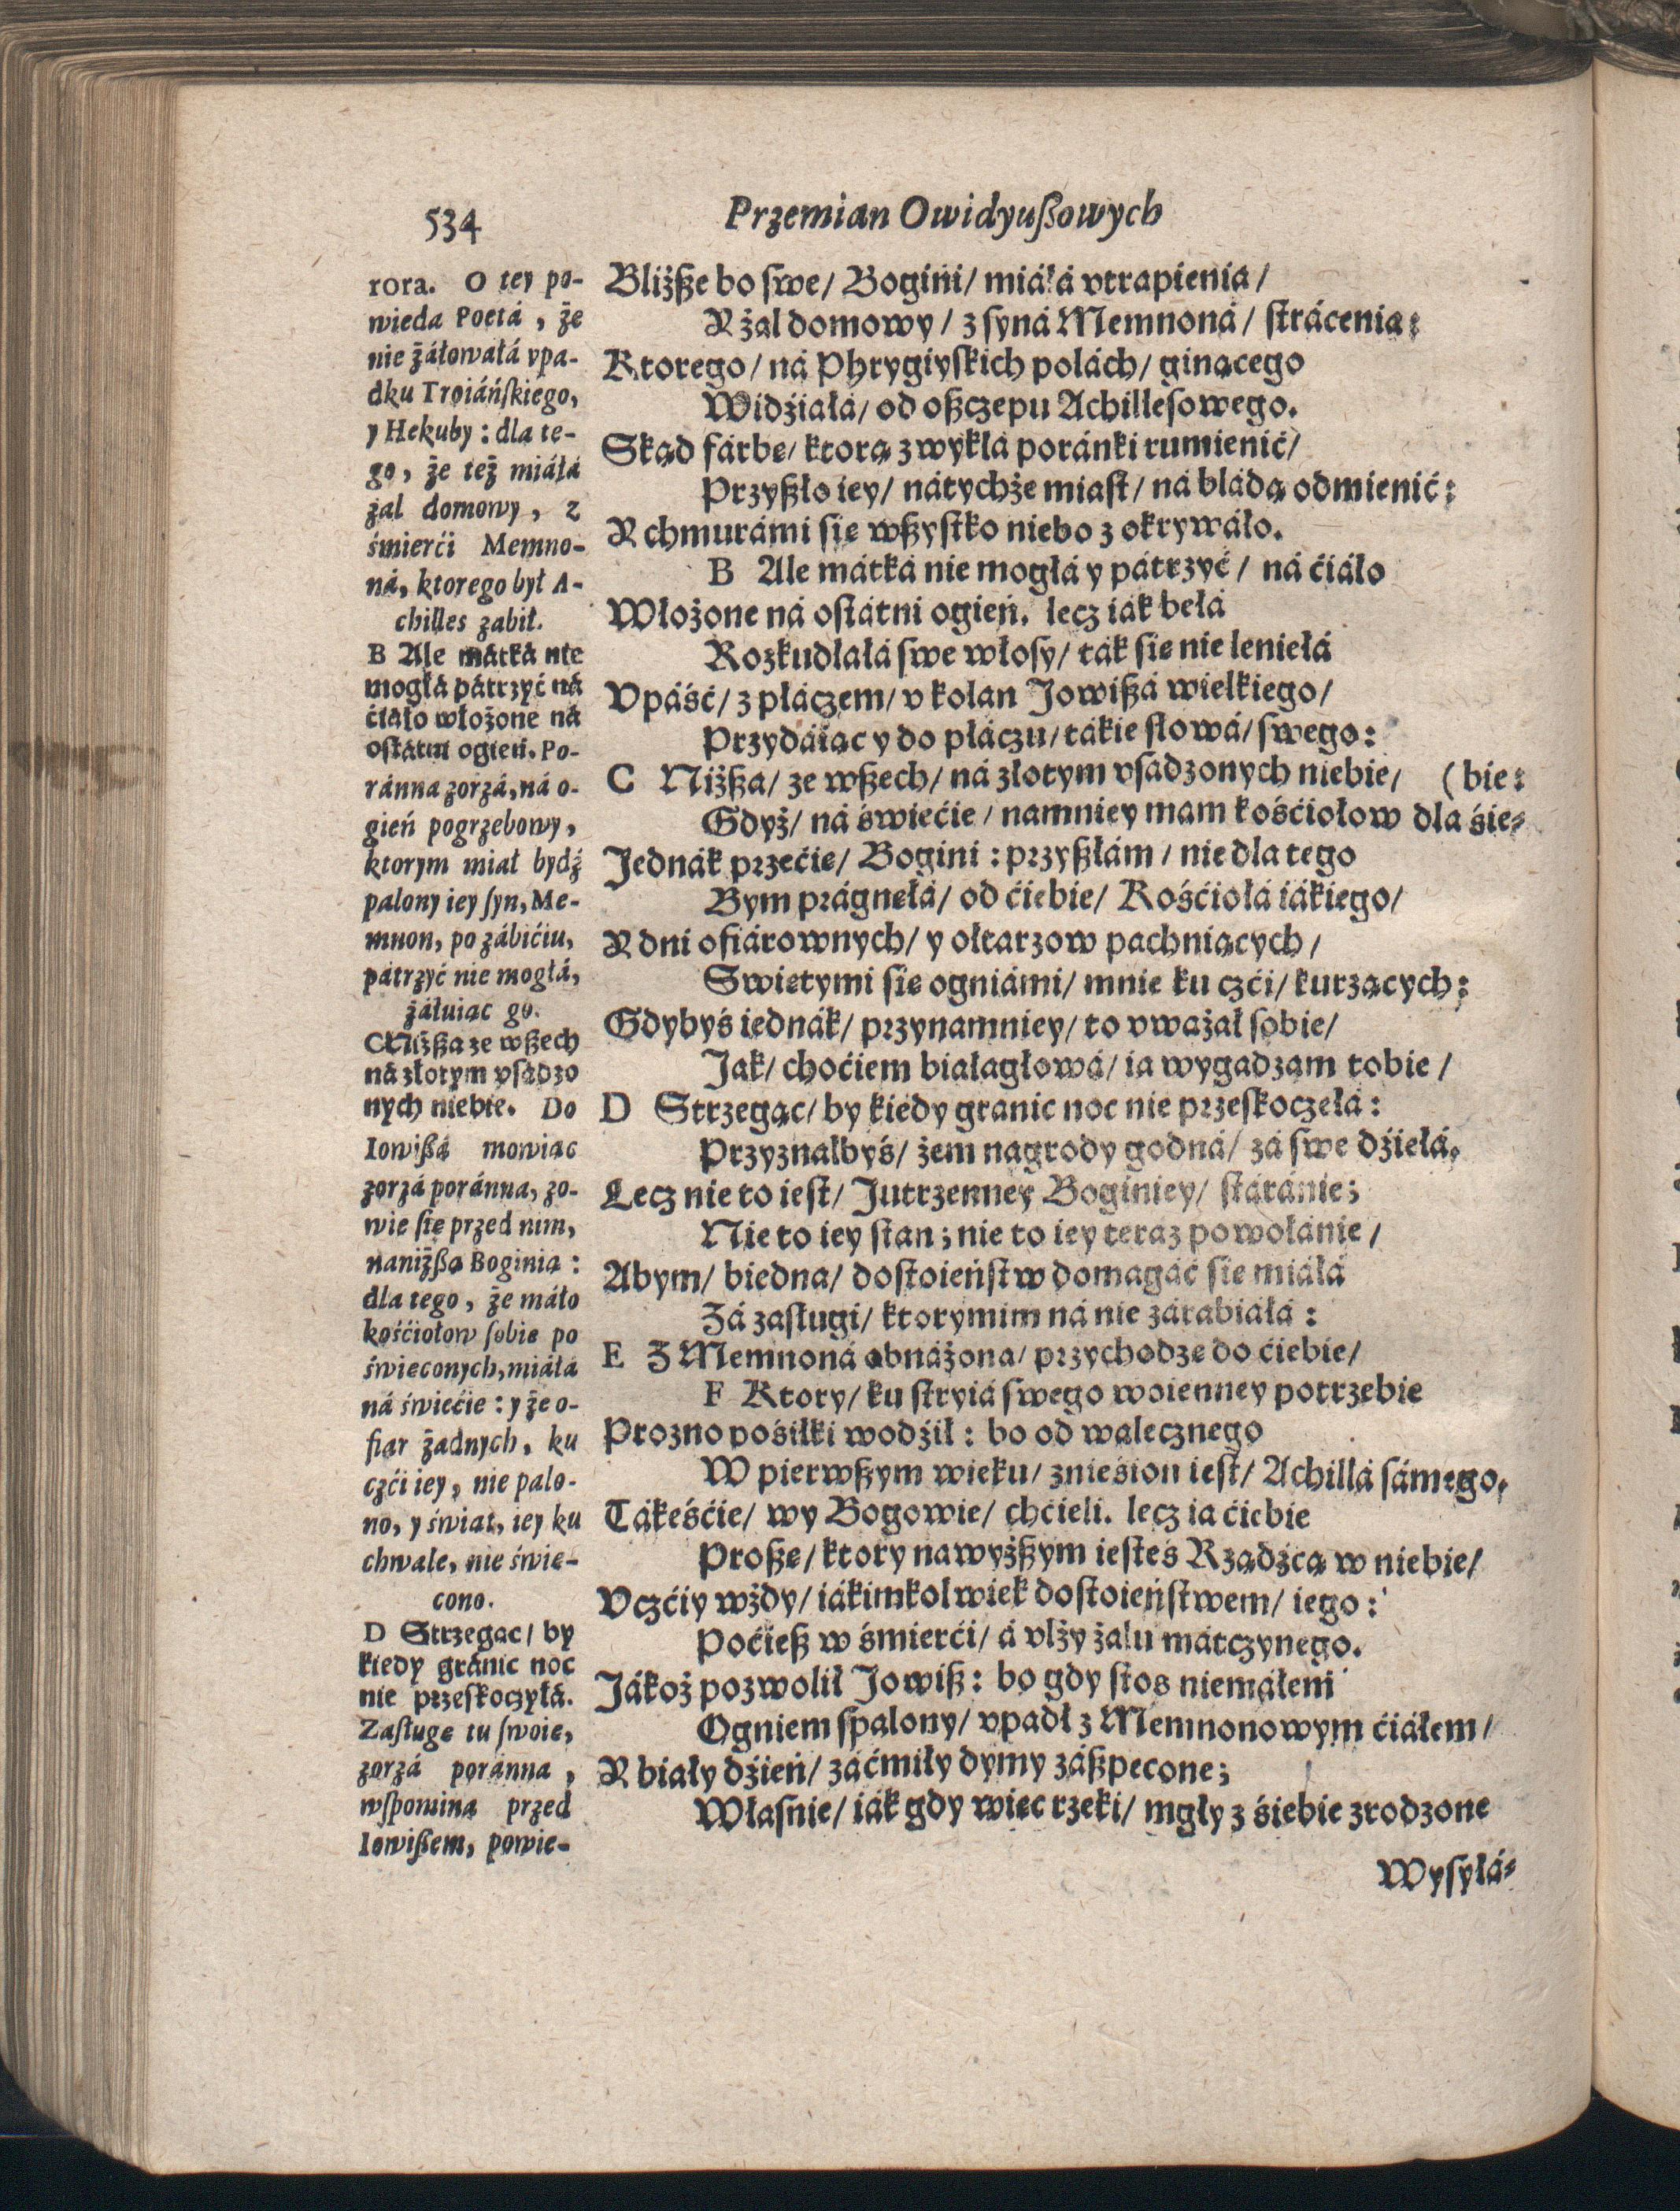 534
Przemian Owidyuſzowych
rora. O tey po-
wieda Poetá, że
nie żáłowáłá vpa-
dku Troiáńſkiego,
y Hekuby : dla te-
go, że też miáłá
żal domowy, z
śmierći Memno-
ná, ktorego był A-
chilles zabił.
B Ale mátká nie
mogłá pátrzyć ná
ćiáło włożone ná
oſtátni ogień. Po-
ránna zorzá, ná o-
gień pogrzebowy,
ktorym miał bydź
palony iey ſyn, Me-
mnon, po zábićiu,
pátrzyć nie mogłá,
żáłuiąc go.
C Niżßa ze wßech
ná złotym vſádzo
nych niebie. Do
Iowißá mowiąc
zorzá poránna, zo-
wie ſię przed nim,
naniżßą Boginią :
dla tego, że máło
kośćiołow ſobie po
święconych, miáłá
ná świećie : y że o-
fiar żadnych, ku
czći iey, nie palo-
no, y świat, iey ku
chwale, nie świę-
cono.
D Strzegąc / by
kiedy gránic noc
nie przeſkoczyłá.
Zaſługę tu ſwoię,
zorzá poránna,
wſpomina przed
Iowißem, powie-
Bliżße bo ſwe / Bogini / miáłá vtrapienia /
Y żal domowy / z ſyná Memnoná / ſtrácenia :
Ktorego / ná Phrygiyſkich polách / ginącego
Widźiáłá / od oßczepu Achilleſowego.
Skąd fárbę / ktorą zwykłá poránki rumienić /
Przyßło iey / nátychże miaſt / ná bládą odmienić :
Y chmurámi ſię wßyſtko niebo z okrywáło.
B Ale mátká nie mogłá y pátrzyć / ná ćiáło
Włożone ná oſtátni ogień. lecz iák bełá
Rozkudłáłá ſwe włoſy / ták ſię nie leniełá
Vpáść / z płáczem / v kolan Jowißá wielkiego /
Przydáiąc y do płáczu / tákie ſłowá / ſwego :
C Niżßa / ze wßech / ná złotym vſadzonych niebie / (bie :
Gdyż / ná świećie / namniey mam kośćiołow dla śie-
Jednák przećię / Bogini : przyßłám / nie dla tego
Bym prágnęłá / od ćiebie / Kośćiołá iákiego /
Y dni ofiárownych / y ołtarzow pachniących /
Swiętymi ſię ogniámi / mnie ku czći / kurzących :
Gdybyś iednák / przynamniey / to vważał ſobie /
Jak / choćiem białagłowá / ia wygadzam tobie /
D Strzegąc / by kiedy granic noc nie przeſkoczełá :
Przyznałbyś / żem nagrody godná / zá ſwe dźiełá.
Lecz nie to ieſt / Jutrzenney Boginiey / ſtáránie ;
Nie to iey ſtan ; nie to iey teraz powołánie /
Abym / biedna / doſtoieńſtw domagáć ſię miáłá
Zá zaſługi / ktorymim ná nie zárabiáłá :
E Z Memnoná obnáżona / przychodzę do ćiebie /
F Ktory / ku ſtryiá ſwego woienney potrzebie
Prozno pośiłki wodźił : bo od walecznego
W pierwßym wieku / znieśion ieſt / Achillá ſámego.
Tákeśćie / wy Bogowie / chćieli. lecz ia ćiebie
Proßę / ktory nawyżßym ieſteś Rządźcą w niebie /
Vczćiy wżdy / iákimkolwiek doſtoieńſtwem / iego :
Poćieß w śmierći / á vlży żalu mátczynego.
Jákoż pozwolił Jowiß : bo gdy ſtos niemáłem
Ogniem ſpalony / vpadł z Memnonowym ćiáłem /
Y biały dźień / záćmiły dymy záßpecone ;
Właſnie / iák gdy więc rzeki / mgły z śiebie zrodzone
Wyſyłá-